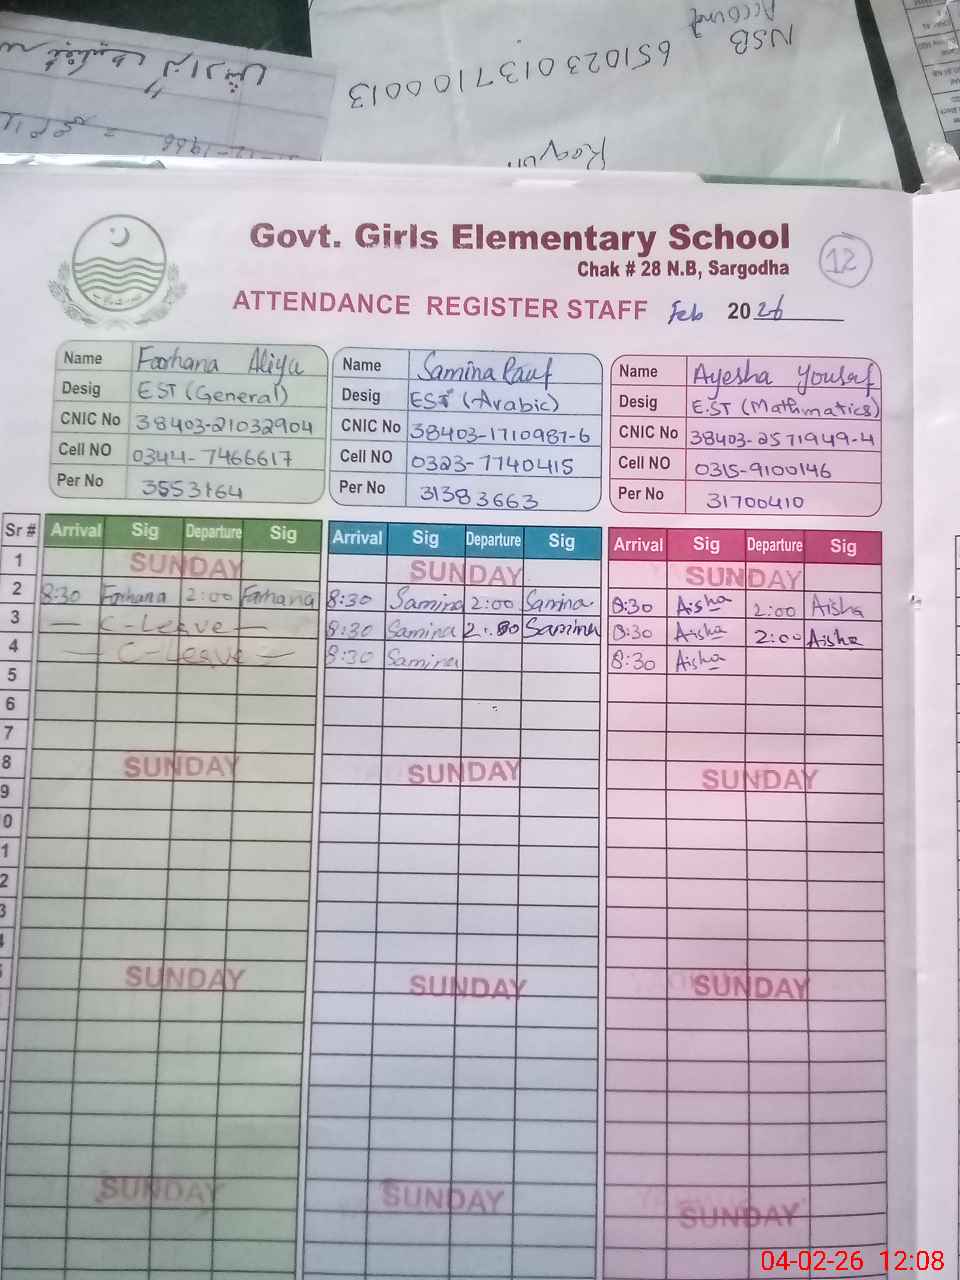 NSB
Account
6510230137100013
گزارش
Govt. Girls Elementary School
Chak # 28 N.B, Sargodha
12
ATTENDANCE REGISTER STAFF Feb 2026
Name Farhana Aliya
Desig EST (General)
CNIC No 38403-21032904
Cell NO 0344-7466617
Per No 3553164
Name Samina Rauf
Desig EST (Arabic)
CNIC No 38403-1710987-6
Cell NO 0323-7740415
Per No 31383663
Name Ayesha Yousaf
Desig EST (Mathmatics)
CNIC No 38403-2571949-4
Cell NO 0315-9100146
Per No 31700410
Sr # Arrival Sig Departure Sig Arrival Sig Departure Sig Arrival Sig Departure Sig
1 SUNDAY SUNDAY SUNDAY
2 8:30 Farhana 2:00 Farhana 8:30 Samina 2:00 Samina 8:30 Aisha 2:00 Aisha
3 — C-Leave — 8:30 Samina 2:00 Samina 8:30 Aisha 2:00 Aisha
4 — C-Leave — 8:30 Samina 8:30 Aisha
5
6
7
8 SUNDAY SUNDAY SUNDAY
9
0
1
2
3
SUNDAY SUNDAY SUNDAY
SUNDAY SUNDAY SUNDAY
04-02-26 12:08